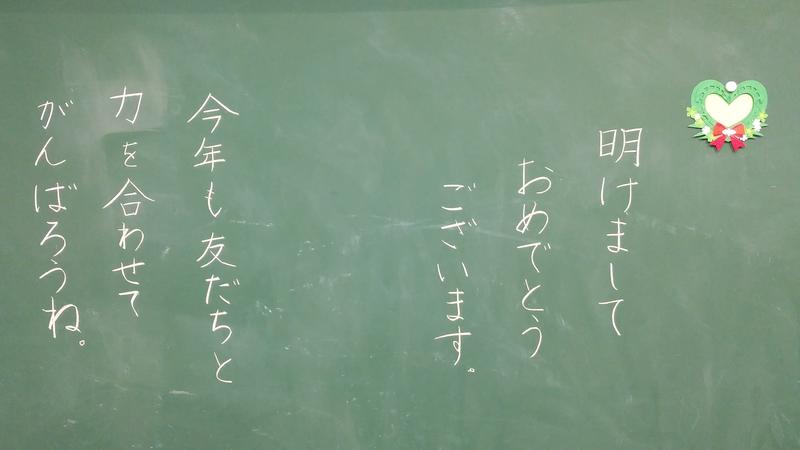 明けまして
おめでとう
ございます。
今年も友だちと
力を合わせて
がんばろうね。